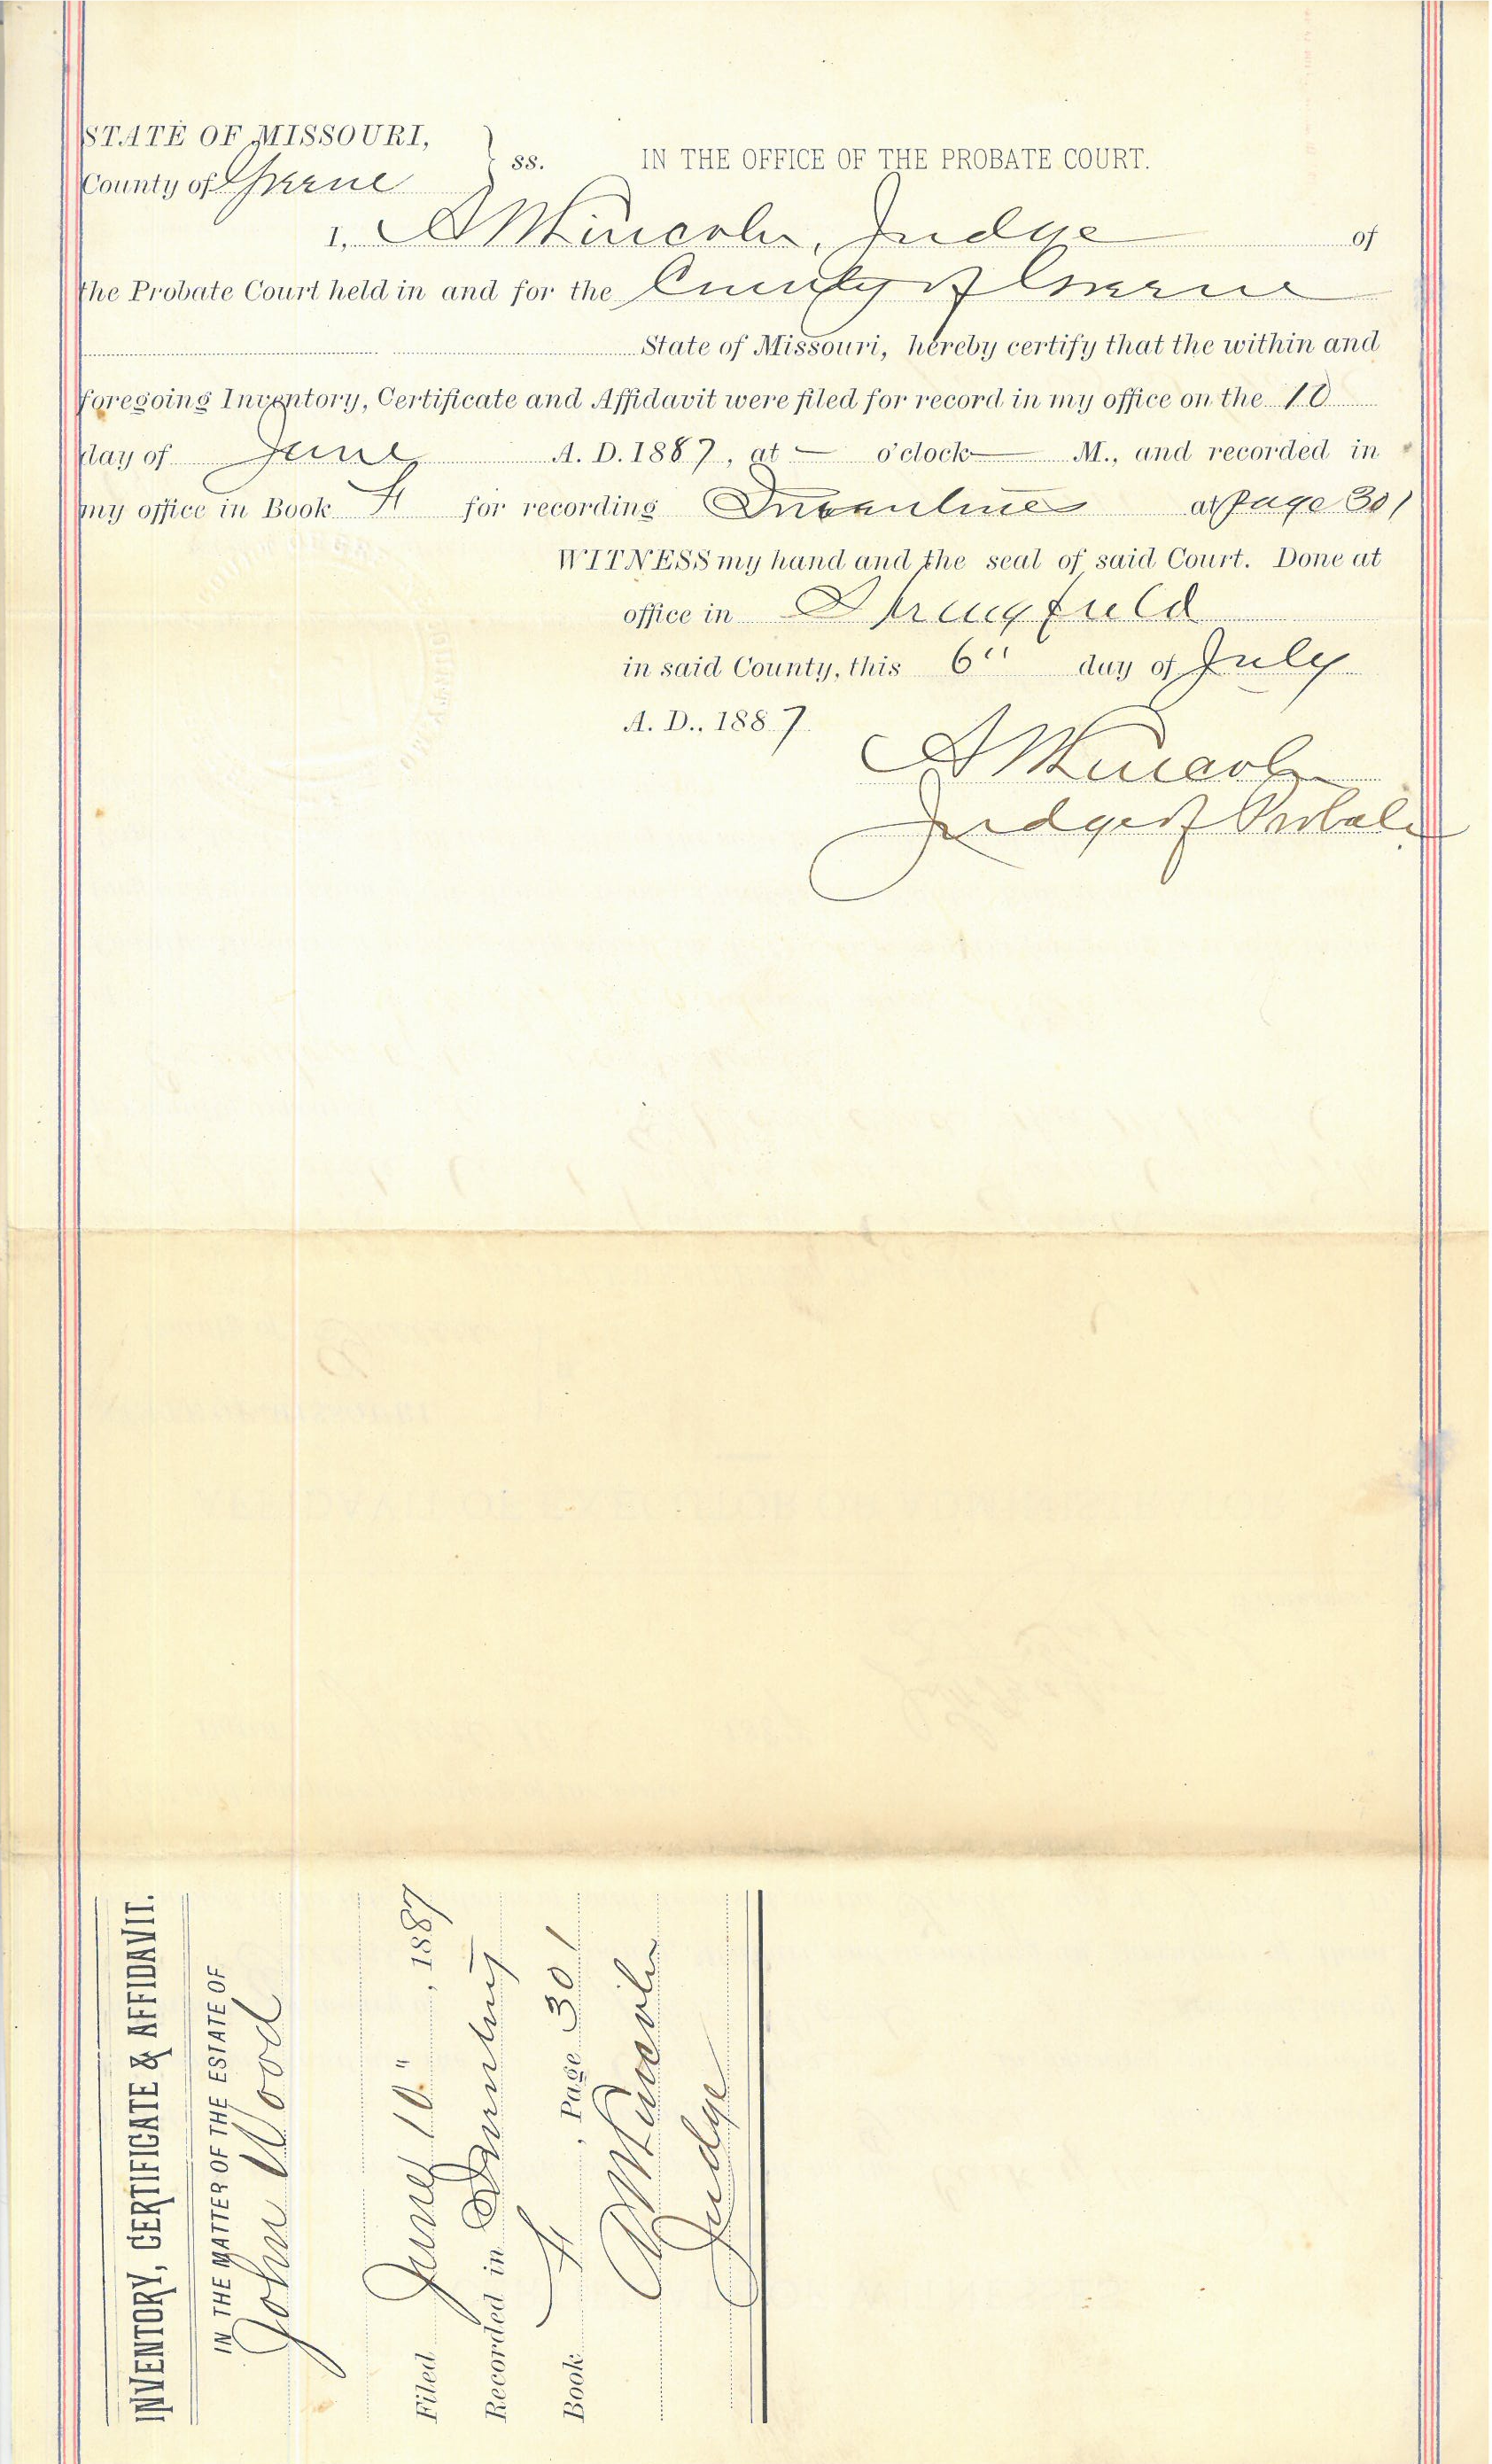 STATE OF MISSOURI,
County of Greene } ss. IN THE OFFICE OF THE PROBATE COURT.
I, A W Lincoln, Judge of
the Probate Court held in and for the County of Greene
State of Missouri, hereby certify that the within and
foregoing Inventory, Certificate and Affidavit were filed for record in my office on the 10
day of June A. D. 1887, at — o'clock — M., and recorded in
my office in Book for recording Inventories at page 301
WITNESS my hand and the seal of said Court. Done at
office in Springfield
in said County, this 6" day of July
A. D., 1887
A W Lincoln
Judge of Probate
INVENTORY, CERTIFICATE & AFFIDAVIT.
IN THE MATTER OF THE ESTATE OF
John Wood
Filed June 10", 1887
Recorded in Inventory
Book , Page 301
A W Lincoln
Judge